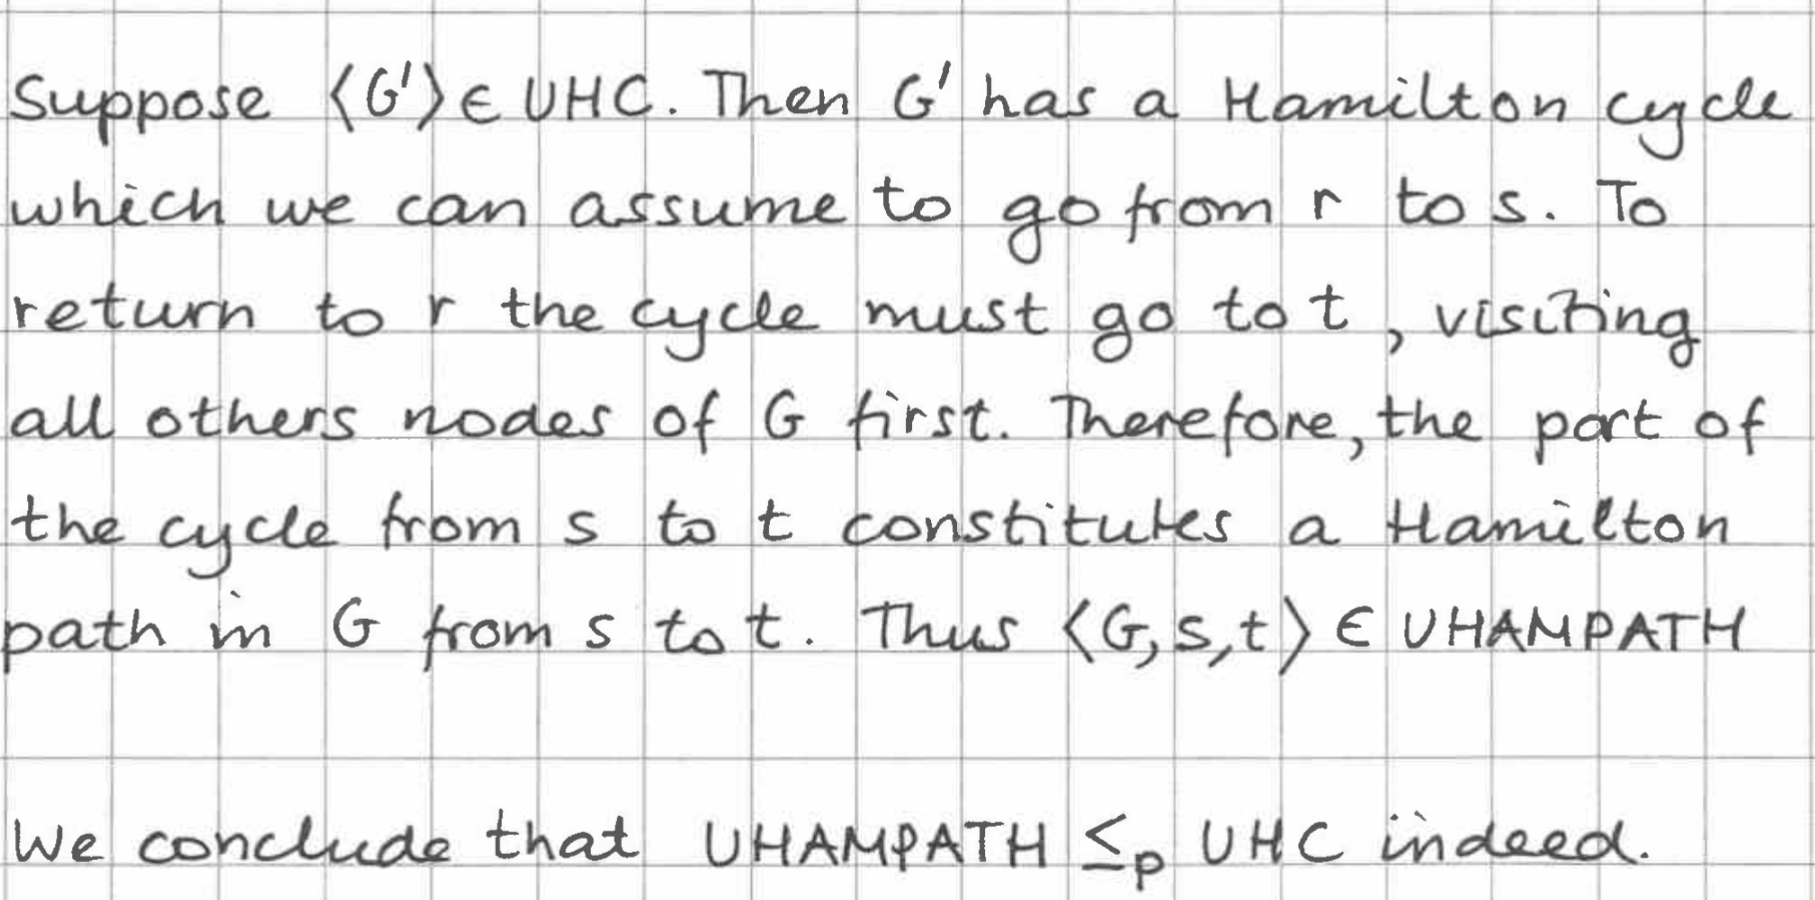 Suppose ⟨G'⟩ ∈ UHC. Then G' has a Hamilton cycle
which we can assume to go from r to s. To
return to r the cycle must go to t, visiting
all others nodes of G first. Therefore, the part of
the cycle from s to t constitutes a Hamilton
path in G from s to t. Thus ⟨G,s,t⟩ ∈ UHAMPATH
We conclude that UHAMPATH ≤p UHC indeed.